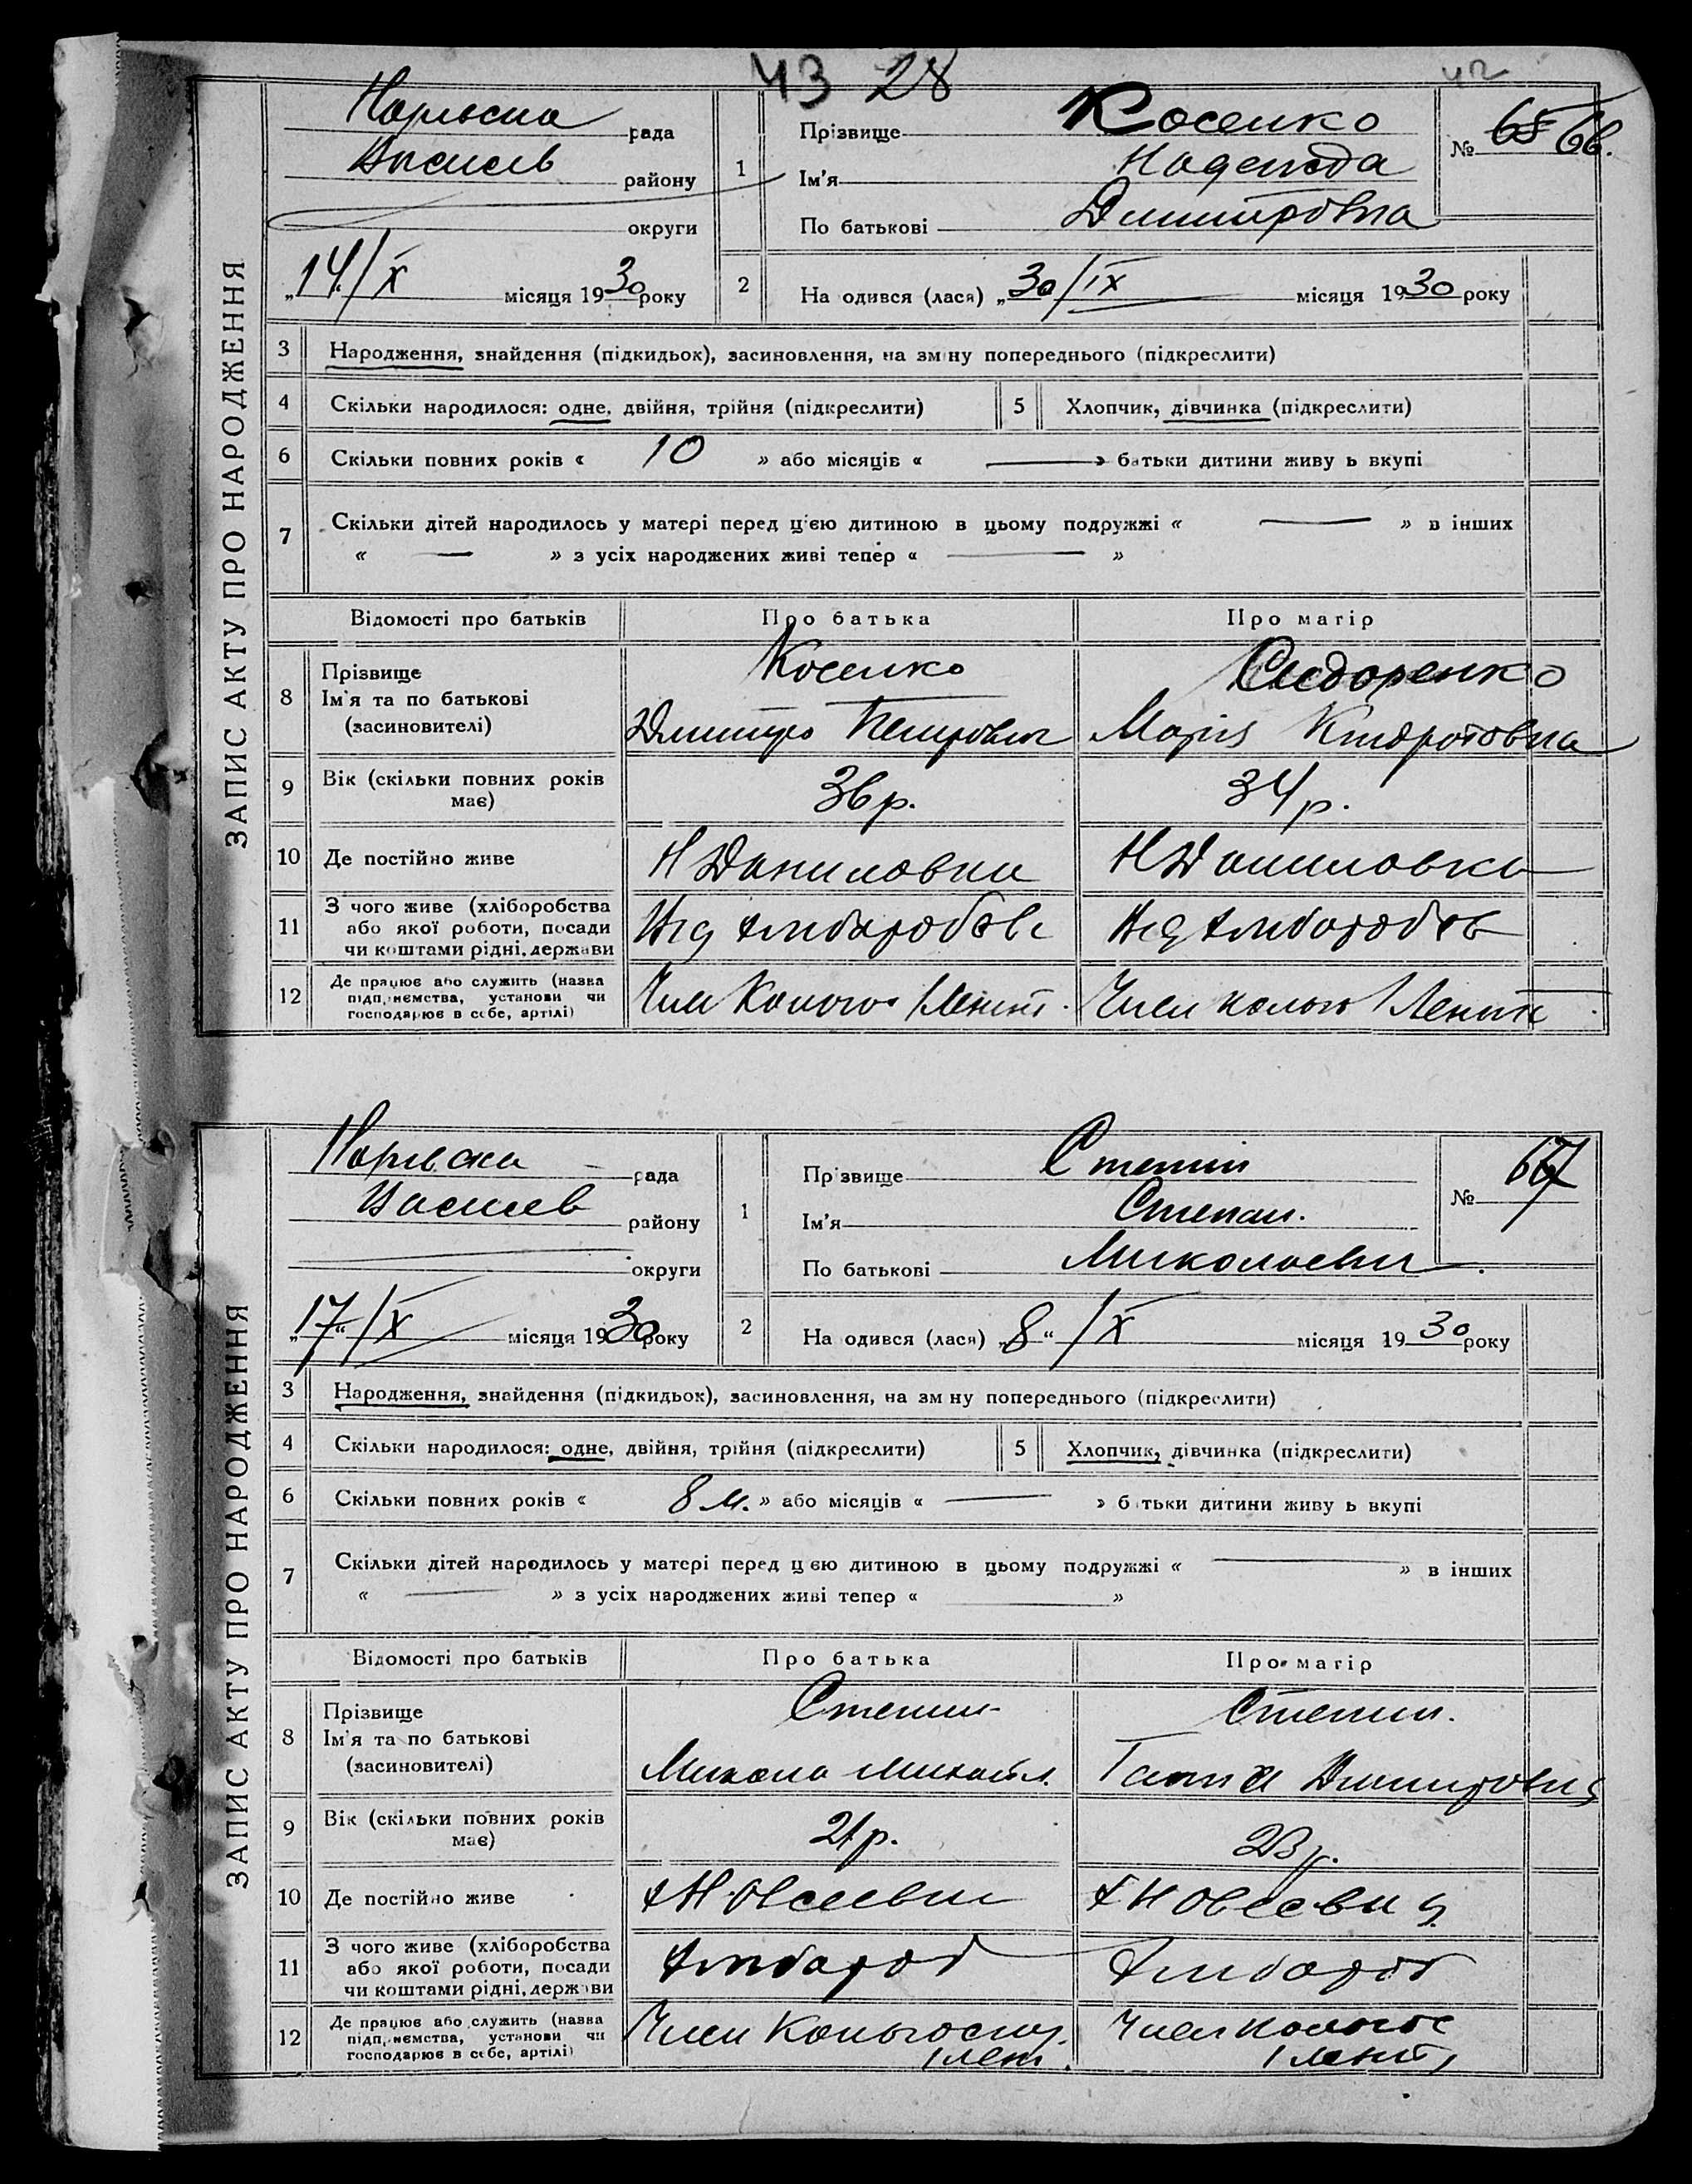 43 28
42
ЗАПИС АКТУ ПРО НАРОДЖЕННЯ
рада
району
округи
„14/X місяця 1930 року
1 Прізвище Косенко
Ім'я Надежда
По батькові Дмитровна
№ 65 66.
2 На одився (лася) „30/IX місяця 1930 року
3 Народження, знайдення (підкидьок), засиновлення, на зм ну попереднього (підкреслити)
4 Скільки народилося: одне, двійня, трійня (підкреслити) 5 Хлопчик, дівчинка (підкреслити)
6 Скільки повних років « 10 » або місяців « — » батьки дитини живу ь вкупі
7 Скільки дітей народилось у матері перед ц єю дитиною в цьому подружжі « — » в інших
« — » з усіх народжених живі тепер « — »
Відомості про батьків Про батька Про матір
8 Прізвище Косенко Сидоренко
Ім'я та по батькові
(засиновителі) Дмитро Петрович Марія Кіндратовна
9 Вік (скільки повних років має) 36 р. 34 р.
10 Де постійно живе Н Даниловка Н Даниловка
11 З чого живе (хліборобства
або якої роботи, посади
чи коштами рідні, держави
12 Де працює або служить (назва
підп, иємства, установи чи
господарює в себе, артілі)
Член Член
ЗАПИС АКТУ ПРО НАРОДЖЕННЯ
рада
району
округи
„17“/X місяця 1930 року
1 Пр звище
Ім'я Степан.
По батькові Миколаевич
№ 67
2 На одився (лася) „8“ /X місяця 1930 року
3 Народження, знайдення (підкидьок), засиновлення, на зм ну попереднього (підкреслити)
4 Скільки народилося: одне, двійня, трійня (підкреслити) 5 Хлопчик, дівчинка (підкреслити)
6 Скільки повних років « 8 м. » або місяців « — » б тьки дитини живу ь вкупі
7 Скільки дітей народилось у матері перед ц єю дитиною в цьому подружжі « — » в інших
« — » з усіх народжених живі тепер « — »
Відомості про батьків Про батька Про матір
8 Прізвище
Ім'я та по батькові
(засиновителі) Микола Михайл. Ганна Дмитровна
9 Вік (скільки повних років має) 21 р. 23 р.
10 Де постійно живе
11 З чого живе (хліборобства
або якої роботи, посади
чи коштами рідні, держави
12 Де працює або служить (назва
підп, иємства, установи чи
господарює в себе, артілі)
Член Член